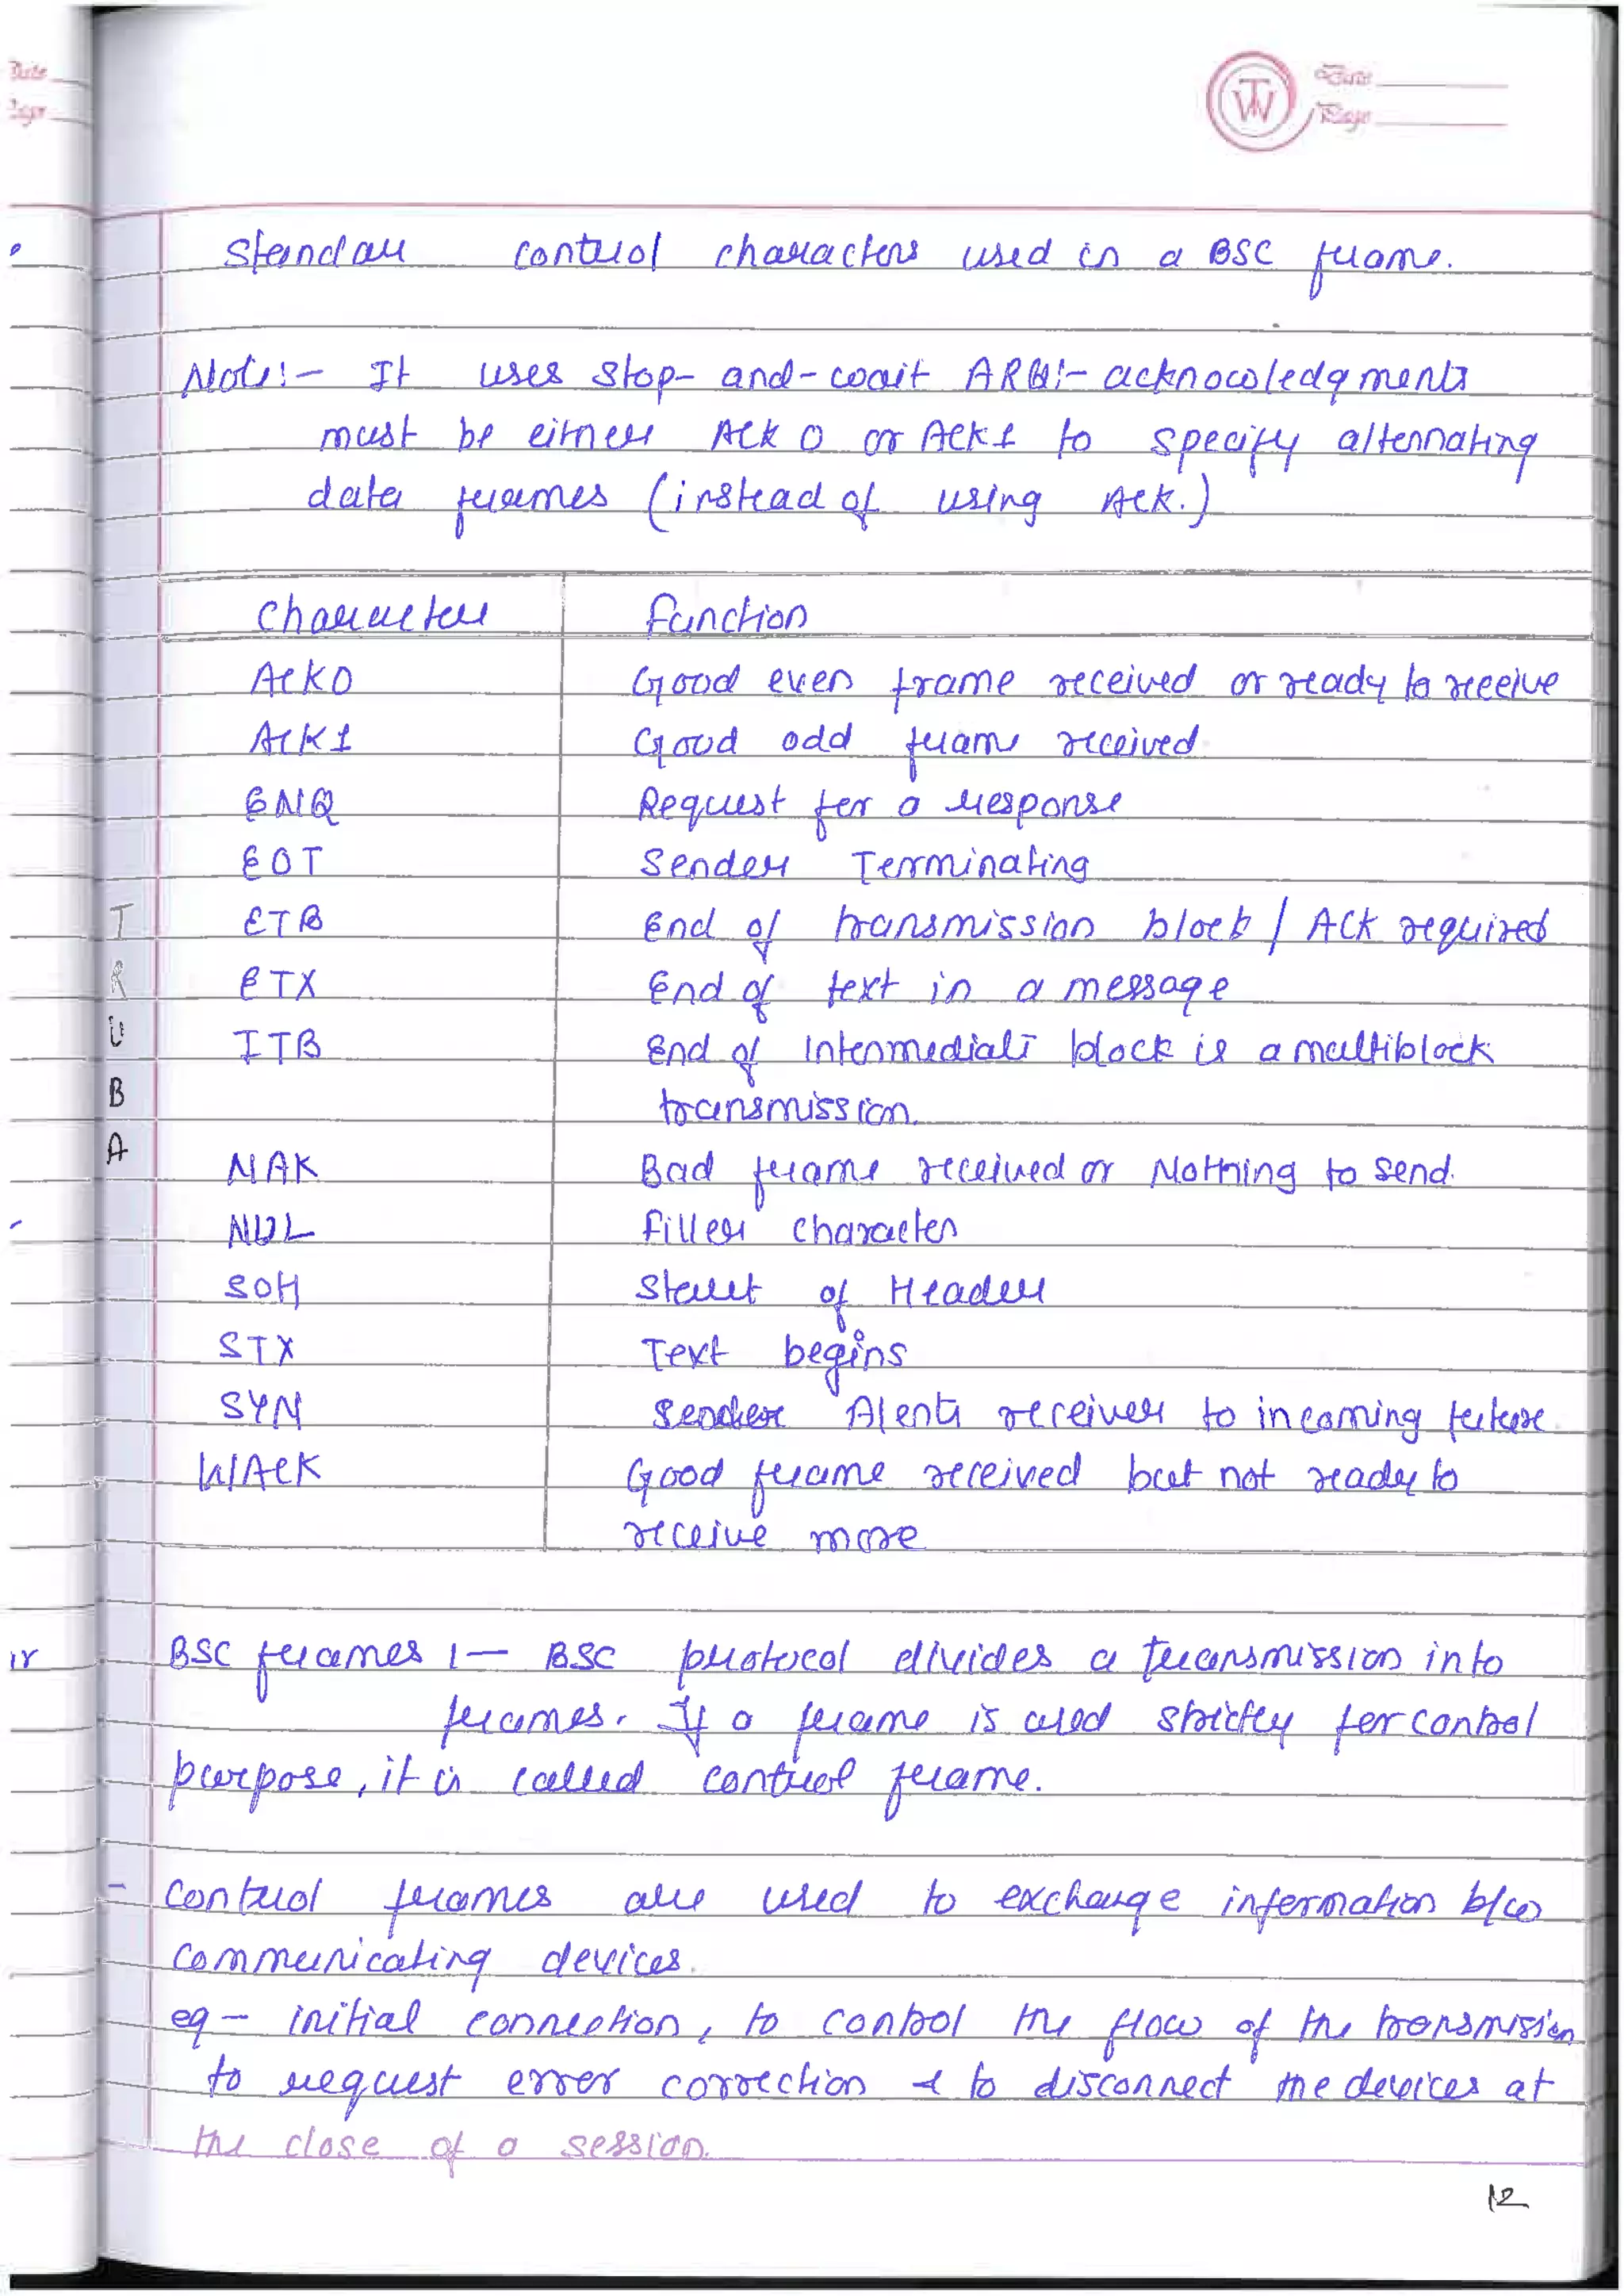 Date
Page
TW
Date
Page
Standar control characters used in a BSC frame.
Note:- It uses stop-and-wait ARQ:- acknowledgments
must be either ACK 0 or ACK1 to specify alternating
data frames (instead of using ACK.)
Character Function
ACK0 Good even frame received or ready to receive
ACK1 Good odd frame received
ENQ Request for a response
EOT Sender Terminating
ETB End of transmission block / ACK required
ETX End of text in a message
ITB End of Intermediate block is a multiblock
transmission.
NAK Bad frame received or Nothing to send.
NUL Filler character
SOH Start of Header
STX Text begins
SYN Alerts receiver to incoming
WACK Good frame received but not ready to
receive more
T
R
U
B
A
BSC frames :- BSC protocol divides a transmission into
frames. If a frame is used strictly for control
purpose, it is called control frame.
- Control frames are used to exchange information b/w
communicating devices.
eg - initial connection, to control the flow of the transmission
to request error correction & to disconnect the devices at
the close of a session.
12